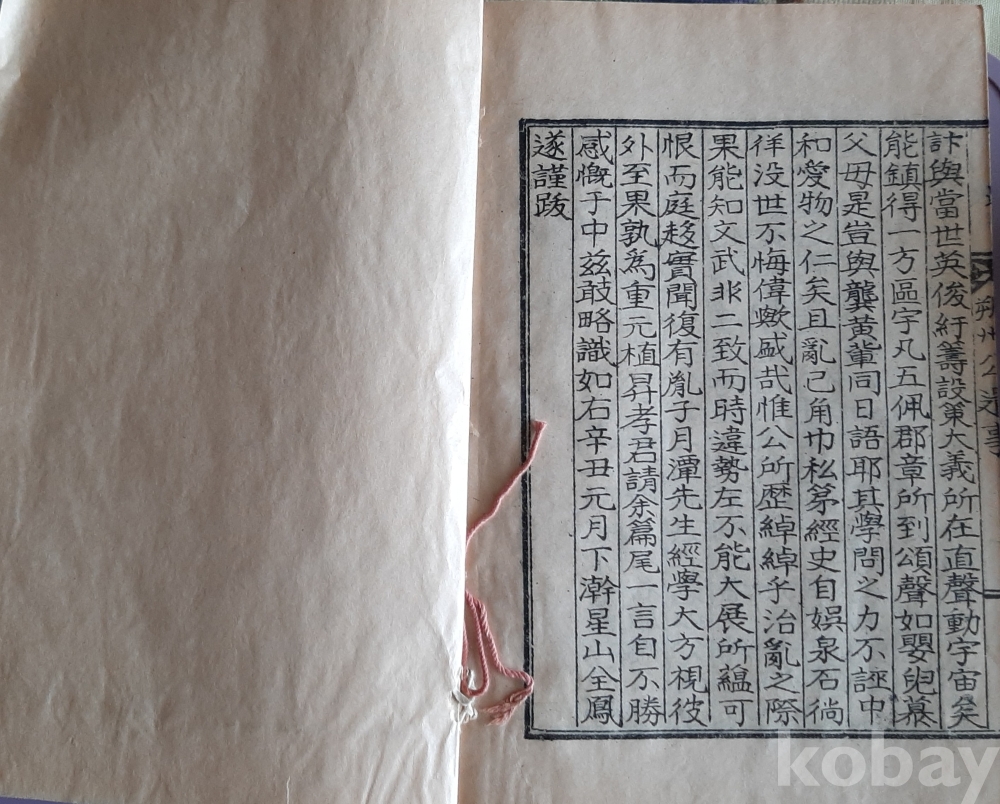 訐與當世英俊紆籌設策大義所在直聲動宇宙矣
能鎮得一方區宇凡五佩郡章所到頌聲如嬰兒慕
父母是豈與龔黃輩同日語耶其學問之力不誣中
和愛物之仁矣且亂已角巾私第經史自娛泉石徜
徉没世不悔偉歟盛哉惟公所歷綽綽乎治亂之際
果能知文武非二致而時違勢左不能大展所蘊可
恨而庭趍實聞復有胤子月潭先生經學大方視彼
外至果孰爲重元植昇孝君請余篇尾一言自不勝
感慨于中玆敢略識如右辛丑元月下澣星山全鳳
遂謹跋
朔州公遺事
kobay